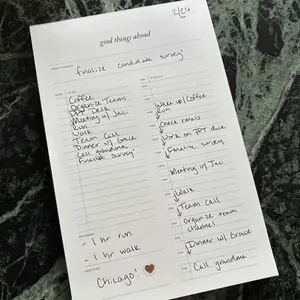 2/24
good things ahead
finalize candidate survey
Coffee
Organize Teams
PPT Deck
Meeting w/ Jac
Run
Walk
Team Call
Dinner w/ Grace
Call grandma
Finalize survey
Wake up/Coffee
Run
Check emails
Work on PPT deck
Finalize survey
Meeting w/ Jac
Walk
Team Call
Organize team
channel
Dinner w/ Grace
Call grandma
- 1 hr run
- 1 hr walk
Chicago!